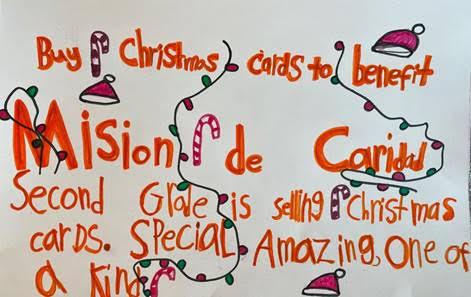 Buy Christmas cards to benefit
Mision de Caridad
Second Grade is selling Christmas
cards. Special Amazing, One of
a kind